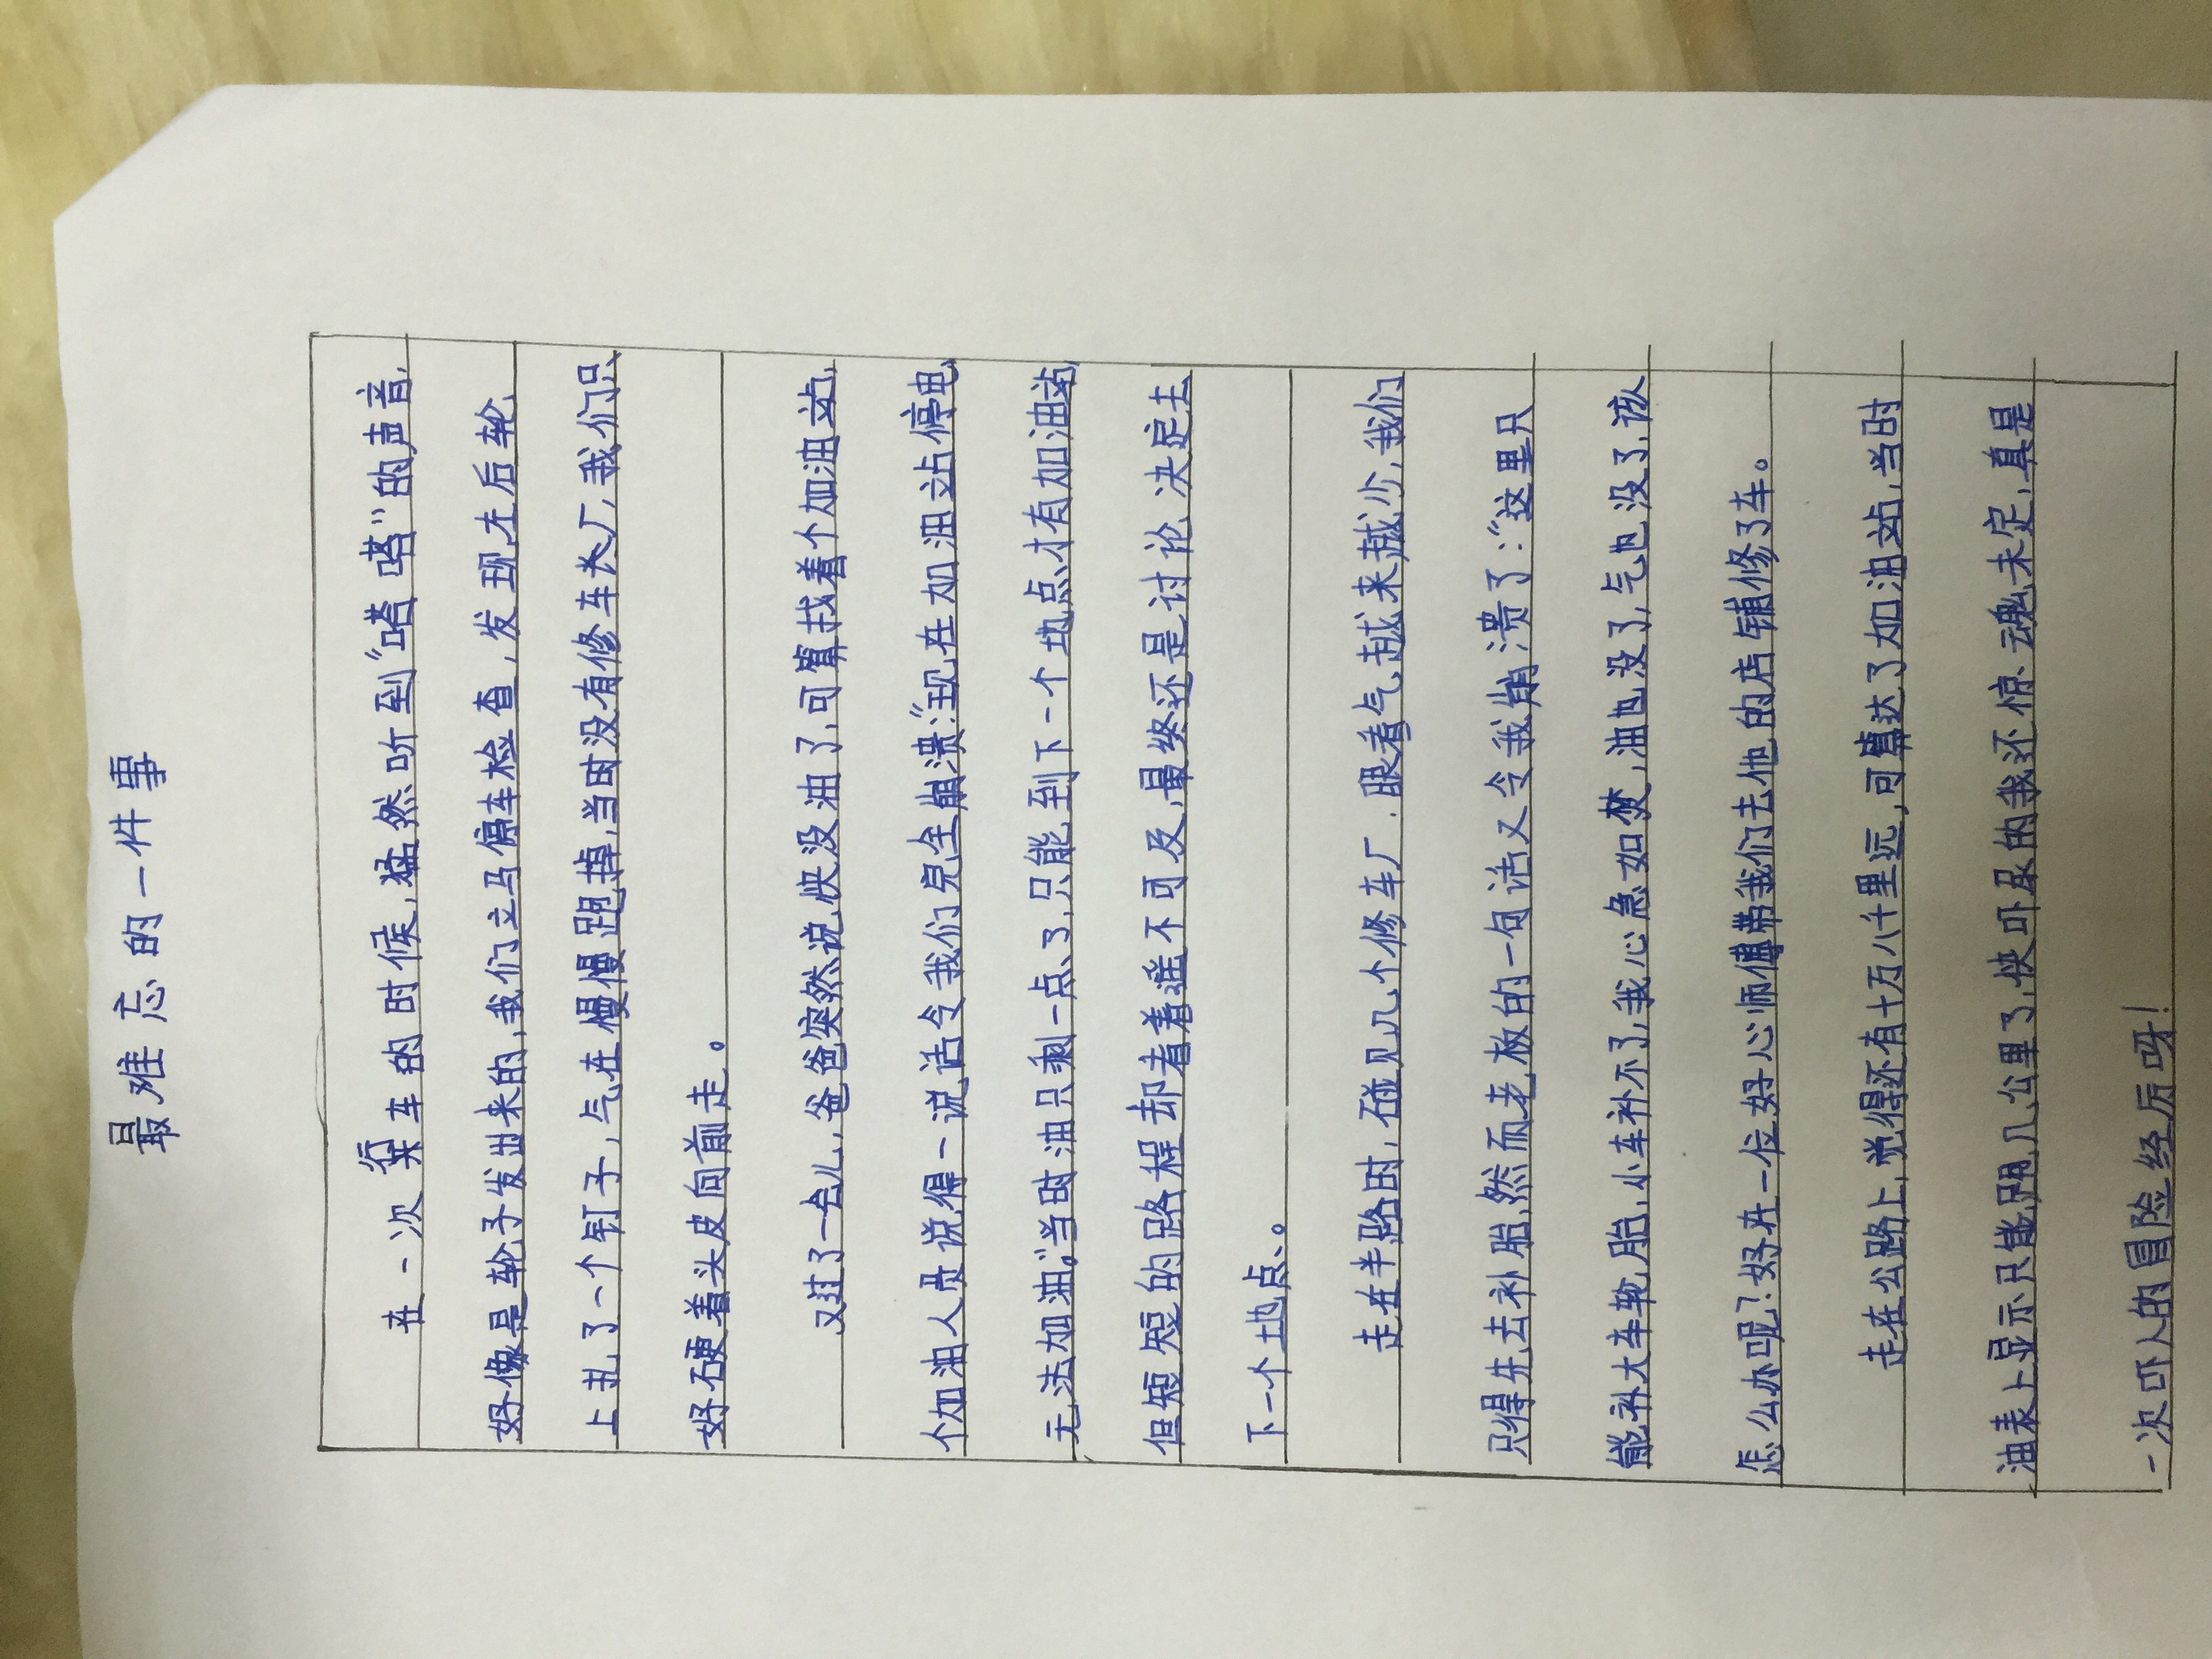 最难忘的一件事
在一次行车的时候,猛然听到“嗒嗒”的声音,
好像是轮子发出来的,我们立马停车检查,发现左后轮
上扎了一个钉子,气在慢慢跑掉,当时没有修车厂,我们只
好硬着头皮向前走。
又过了一会儿,爸爸突然说,快没油了,可算找着个加油站,
个加油人员说得一说话令我们完全崩溃:“现在加油站停电,
无法加油。”当时油只剩一点了,只能到下一个地点才有加油站,
但短短的路程却着遥不可及,最终还是讨论决定去
下一个地点。
走在半路时,碰见几个修车厂.眼看气越来越少,我们
只得先去补胎,然而老板的一句话又令我崩溃了:“这里只
能补大车轮胎,小车补不了,我心急如焚,油也没了,气也没了,该
怎么办呢?好在一位好心师傅带我们去他的店铺修了车。
走在公路上,觉得还有十万八千里远,可算达了加油站,当时
油表上显示只能跑几公里了,快吓尿的我还惊魂未定,真是
一次吓人的冒险经历呀!